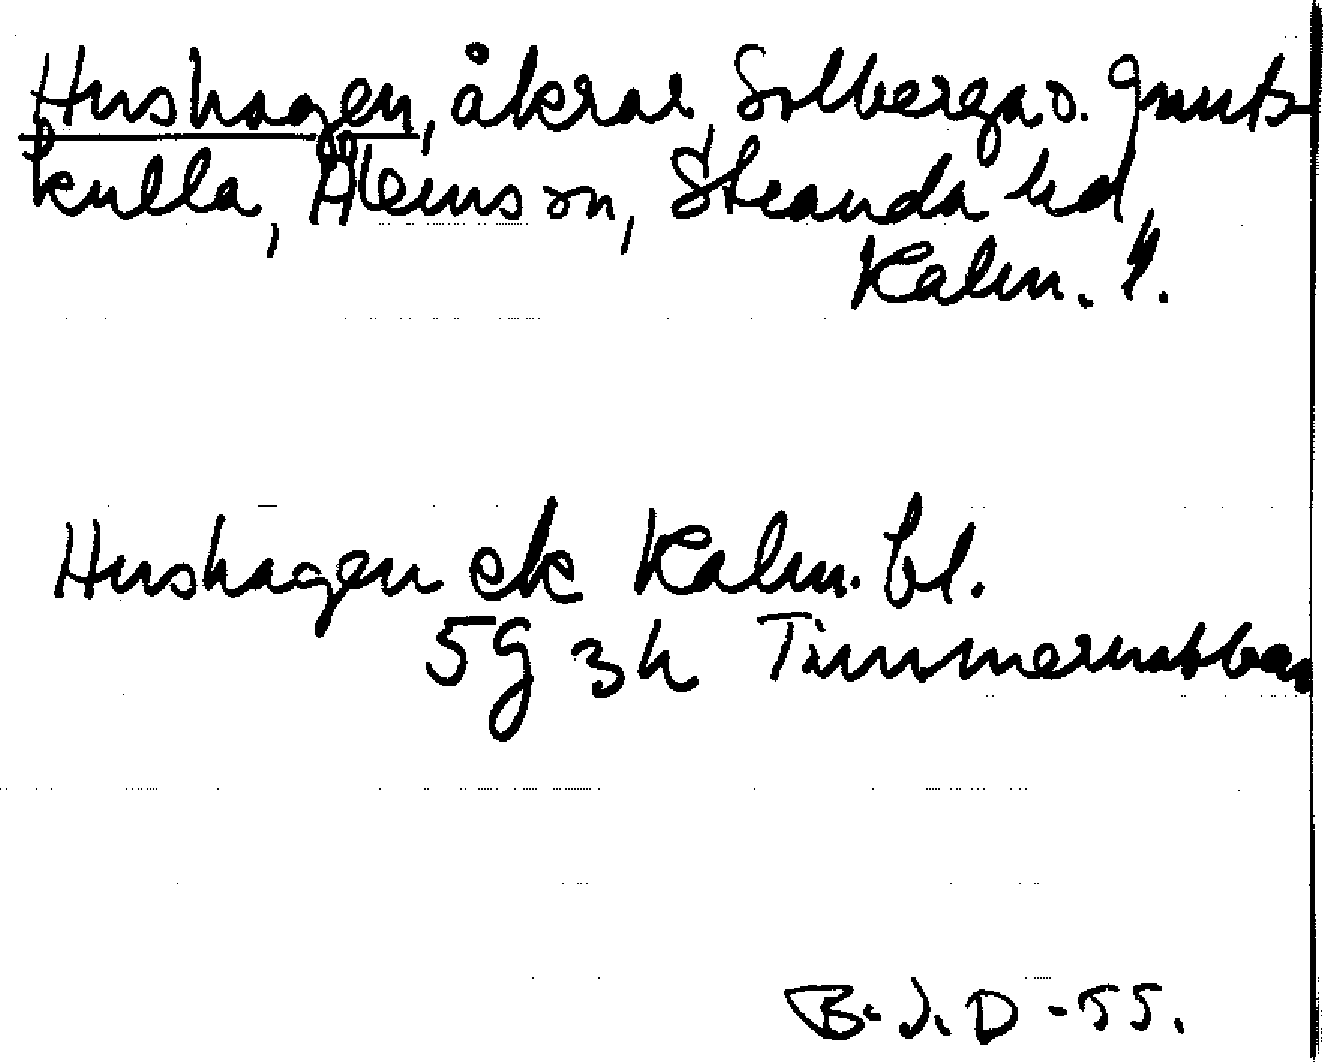 Hushagen, åkrar, Solberga o. Gnuts-
kulla, Ålemson, Stranda hd,
Kalm. l.
Hushagen ek Kalm. bl.
5g 3h Timmernabben
B. J. D -55.